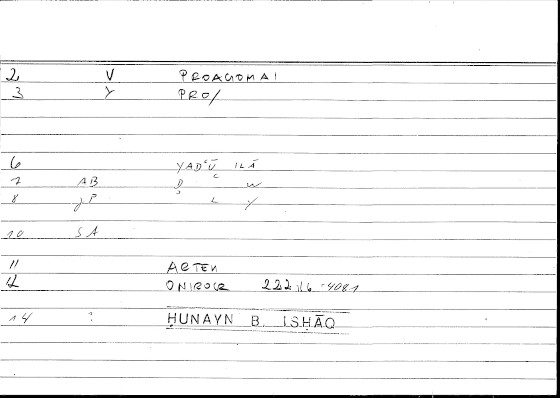 2 V PROAGOMAI
3 Y PRO/
6 YADʿŪ ILĀ
7 AB D ʿ W
8 jP L Y
10 SA
11 ARTEM
12 ONIROCR 222,16-4081
14 ? ḤUNAYN B. ISḤĀQ